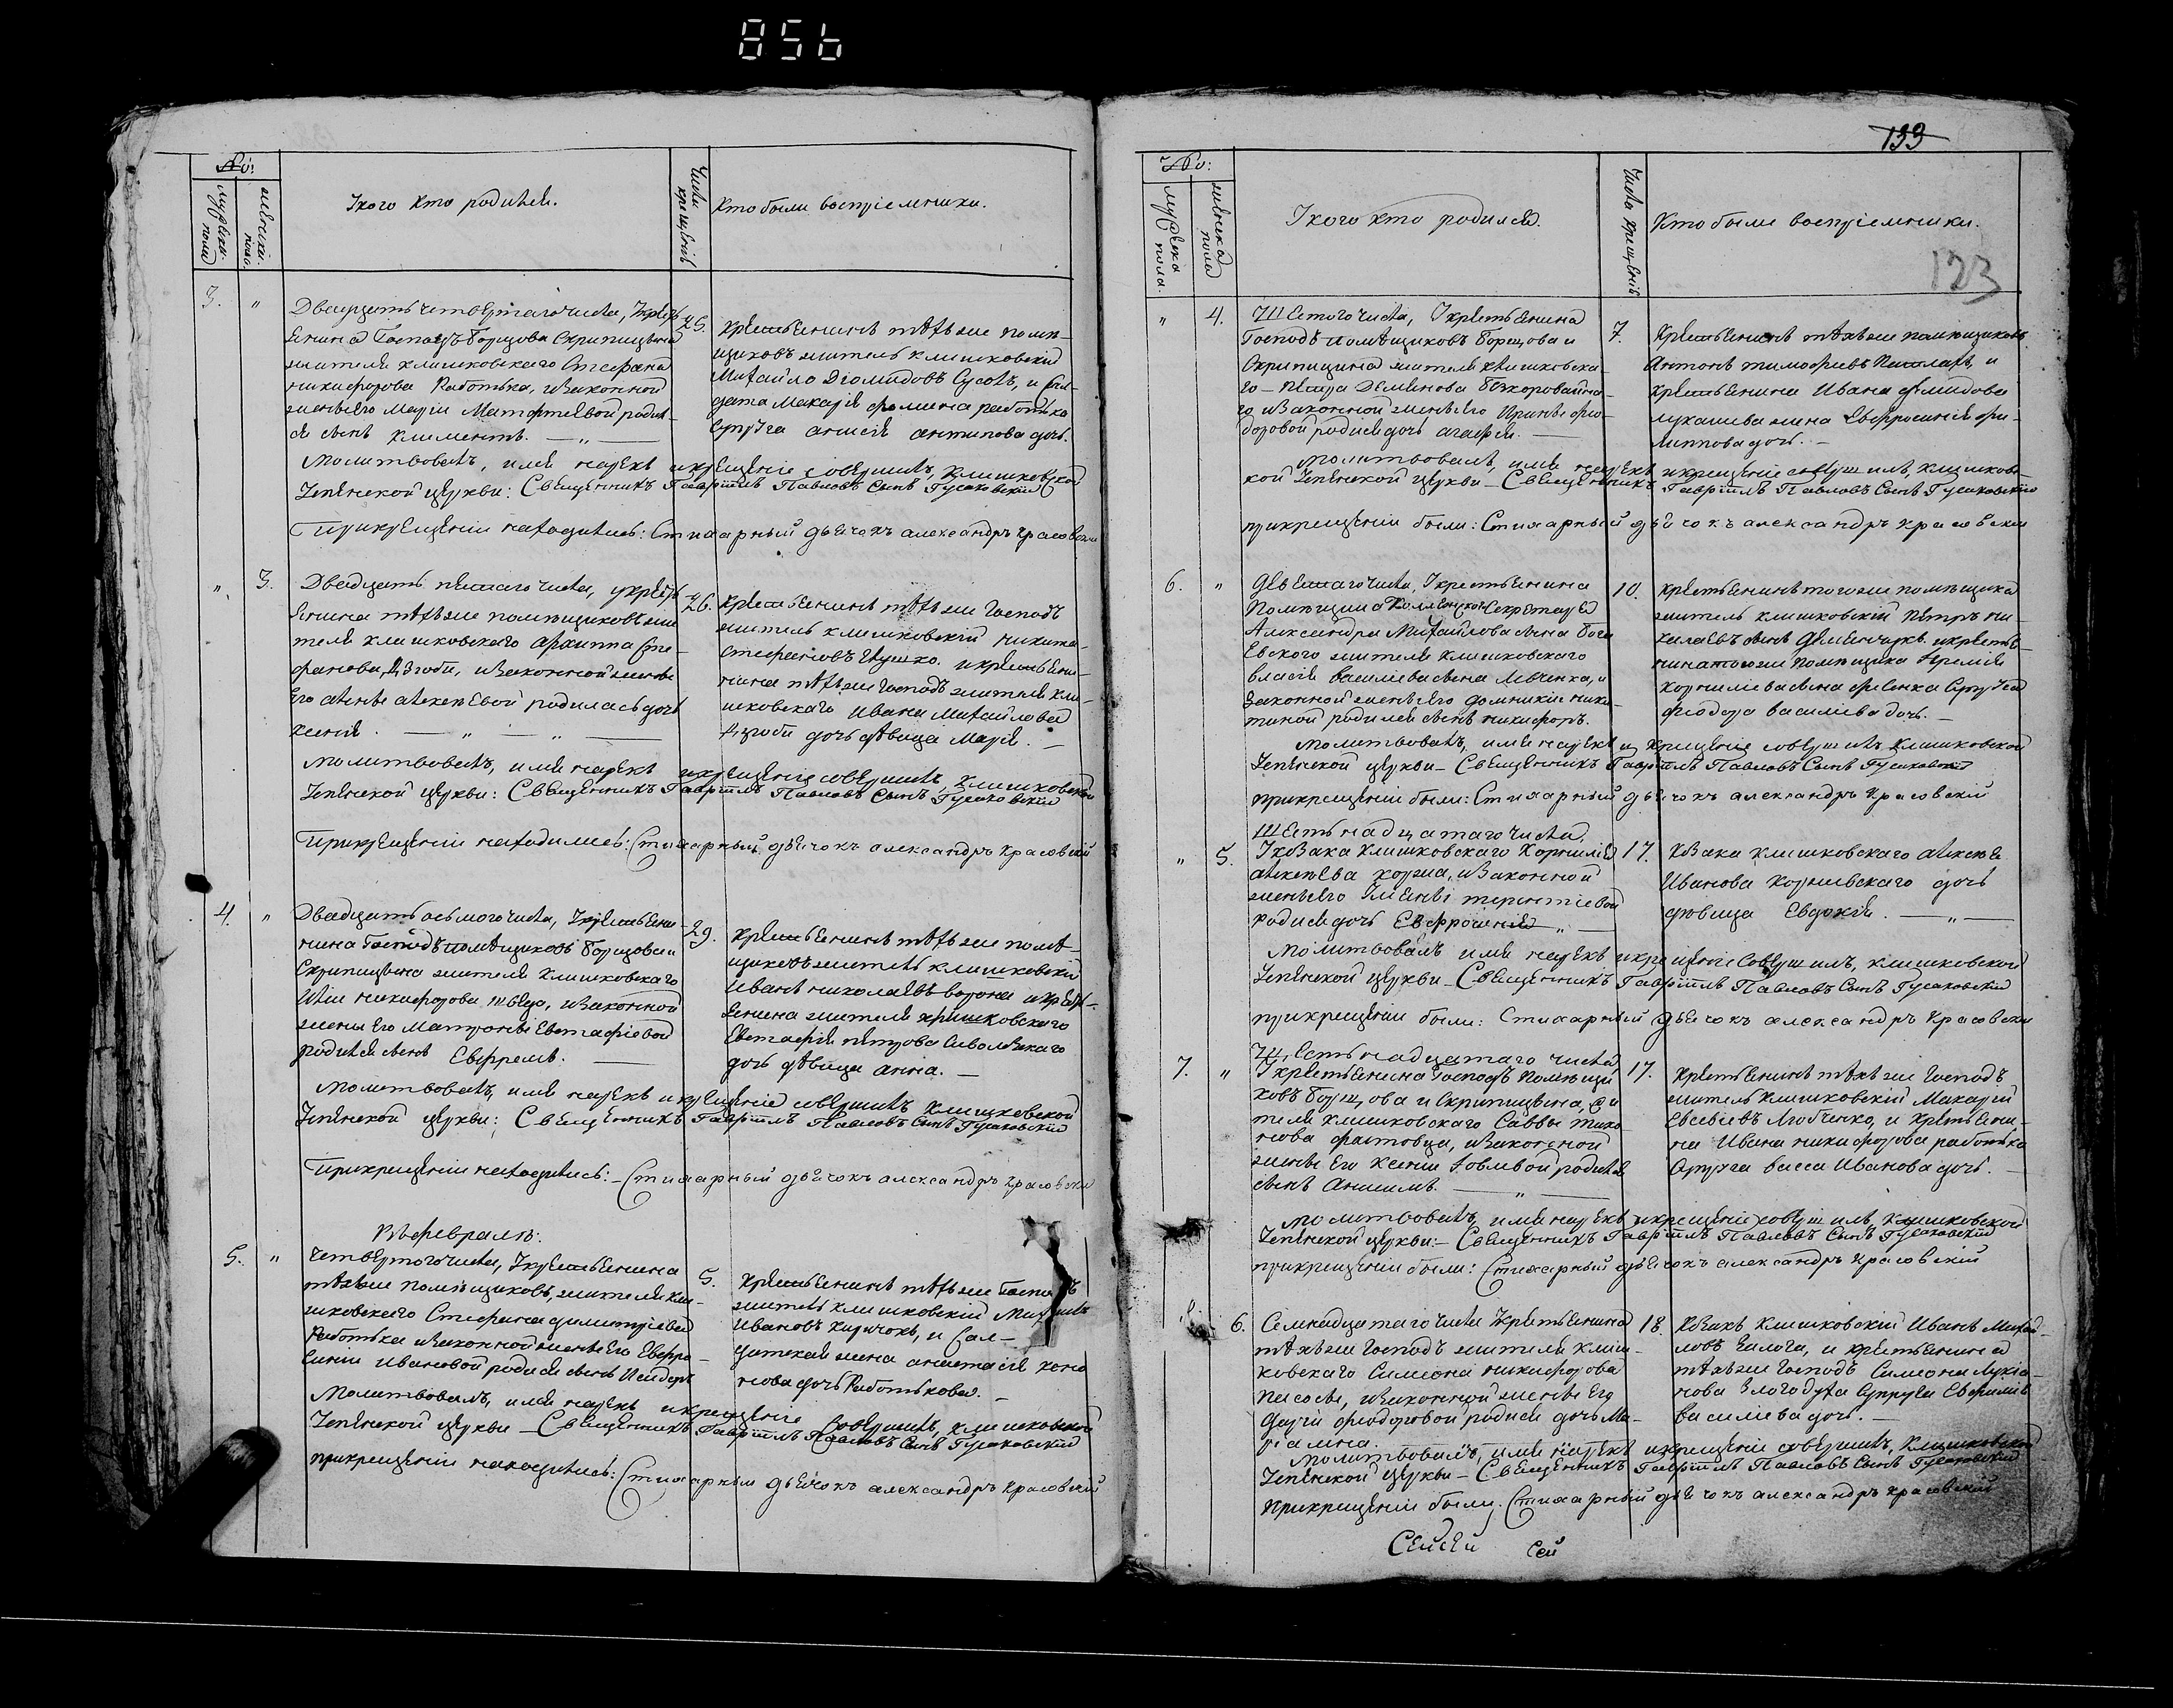 856
№:
мужеска пола
женска пола
У кого кто родился.
Числа крещенія
Кто были воспріемники.
3. „
Двадцать четвертаго числа, у кресть-
янина Господъ Борщова Скрипицына
жителя клишковскаго Стефана
никифорова Работька, и законной
жены его маріи Матфѣевой родил-
ся сынъ климентъ. — „ —
25.
крестьянинъ тѣхъ же помѣ-
щиковъ житель клишковскій
Михайло Діомидовъ Сусолъ, и сол-
дата Макарія фомина работька
супруга анисія антипова дочь.
Молитвовалъ, имя нарекъ и крещеніе совершилъ, клишковской
Успенской церкви: Священникъ Гавріилъ Павловъ сынъ Гусаковскій
При крещеніи находились: Стихарный дьячокъ александръ красовскій
„ 3.
Двадцать пятаго числа, у кресть-
янина тѣхъ же помѣщиковъ жи-
теля клишковскаго архиппа Сте-
фанова Дзюбы, и законной жены
его анны алексѣевой родилась дочь
ксенія. — „ — „ —
26.
крестьянинъ тѣхъ же Господъ
житель клишковскій никита
стефановъ Ивушко. и крестьяни-
нина тѣхъ же Господъ жителя кли-
шковскаго Ивана Михайлова
дзюбы дочь дѣвица Марія. —
Молитвовалъ, имя нарекъ и крещеніе совершилъ, клишковской
Успенской церкви: Священникъ Гавріилъ Павловъ сынъ Гусаковскій
При крещеніи находились: Стихарный дьячокъ александръ красовскій
4. „
Двадцать осьмого числа, у крестьяни-
нина Господъ помѣщиковъ Борщова и
Скрипицына жителя клишковскаго
Иліи никифорова швеца, и законной
жены его Матроны Евстафіевой
родился сынъ Ефремъ. —
29.
крестьянинъ тѣхъ же помѣ-
щиковъ житель клишковскій
иванъ николаевъ ворона и кресть-
янина жителя клишковскаго
Евстафія петрова
дочь дѣвица анна. —
Молитвовалъ, имя нарекъ и крещеніе совершилъ клишковской
Успенской церкви: Священникъ Гавріилъ Павловъ сынъ Гусаковскій
При крещеніи находились: — Стихарный дьячокъ александръ красовскій
Въ февралѣ:
5. „
Четвертого числа, у крестьянина
тѣхъ же помѣщиковъ, жителя кли-
шковскаго Стефана димитріева
Работька и законной жены его Евфро-
синіи Ивановой родился сынъ Исидоръ
5.
крестьянинъ тѣхъ же Господъ
житель клишковскій Михаилъ
Ивановъ киричокъ, и Сол-
датская жена анастасія коно-
нова дочь Работькова. —
Молитвовалъ, имя нарекъ и крещеніе совершилъ, клишковской
Успенской церкви — Священникъ Гавріилъ Павловъ сынъ Гусаковскій
при крещеніи находились: Стихарный дьячокъ александръ красовскій
133
123
№:
мужеска пола.
женска пола
У кого кто родился.
Числа крещенія
Кто были воспріемники.
„ 4.
Шестого числа, у крестьянина
Господъ помѣщиковъ Борщова и
Скрипицына жителя клишковска-
го — петра Демянова безкоровайна-
го и законной жены его Ирины фео-
доровой родися дочь агафія. —
7.
крестьянинъ тѣхъ же помѣщиковъ
антонъ тимофеевъ, и
крестьянина Ивана
лукашева жена Евфросинія фи-
липпова дочь. —
Молитвовалъ, имя нарекъ и крещеніе совершилъ, клишковс-
кой Успенской церкви — Священникъ Гавріилъ Павловъ сынъ Гусаковскій
при крещеніи были: Стихарный дьячокъ александръ красовскій
6. „
Девятаго числа, у крестьянина
Помѣщика Коллежскаго Секретаря
Александра Михайлова сына
жителя клишковскаго
власія василіева сына Левченка, и
законной жены его домникіи ники-
тиной родился сынъ никифоръ.
10.
крестьянинъ того же помѣщика
житель клишковскій Петръ ни-
колаевъ сынъ Демянчукъ. и крестья-
нина того же помѣщика іереміи
корниліева сына супруга
феодора василіева дочь. —
Молитвовалъ, имя нарекъ и крещеніе совершилъ клишковской
Успенской церкви — Священникъ Гавріилъ Павловъ сынъ Гусаковскій
при крещеніи были: Стихарный дьячокъ александръ красовскій
„ 5.
Шестьнадцатаго числа,
У козака клишковскаго Корнилія
алексѣева коржа, и законной
жены его терентіевой
родися дочь Евфросинія „ —
17.
козака клишковскаго алексѣя
Иванова дочь
дѣвица Евдокія. — „ —
Молитвовалъ имя нарекъ и крещеніе совершилъ, клишковской
Успенской церкви — Священникъ Гавріилъ Павловъ сынъ Гусаковскій
при крещеніи были: Стихарный дьячокъ александръ красовскій
7. „
Шестьнадцатаго числа,
У крестьянина Господъ Помѣщи-
ковъ Борщова и Скрипицына, жи-
теля клишковскаго Саввы тихо-
нова фастовца, и законной
жены его ксеніи іовлевой родился
сынъ Анисимъ. — „ —
17.
крестьянинъ тѣхъ же Господъ
житель клишковскій Макарій
Евсевіевъ, и крестьяни-
на Ивана никифорова работька
супруга васса Иванова дочь. —
Молитвовалъ, имя нарекъ и крещеніе совершилъ, клишковской
Успенской церкви: — Священникъ Гавріилъ Павловъ сынъ Гусаковскій
при крещеніи были: Стихарный дьячокъ александръ красовскій
6.
Семнадцатаго числа у крестьянина
тѣхъ же Господъ жителя клиш-
ковскаго Симеона никифорова
, и законной жены его
даріи феодоровой родися дочь Ма-
ріамна.
18.
козакъ клишковскій Иванъ Михай-
ловъ, и крестьянина
тѣхъ же Господъ Симеона Лукіа-
нова супруга Евфимія
василіева дочь. —
Молитвовалъ, имя нарекъ и крещеніе совершилъ, клишковской
Успенской церкви — Священникъ Гавріилъ Павловъ сынъ Гусаковскій
При крещеніи были: Стихарный дьячокъ александръ красовскій
сей